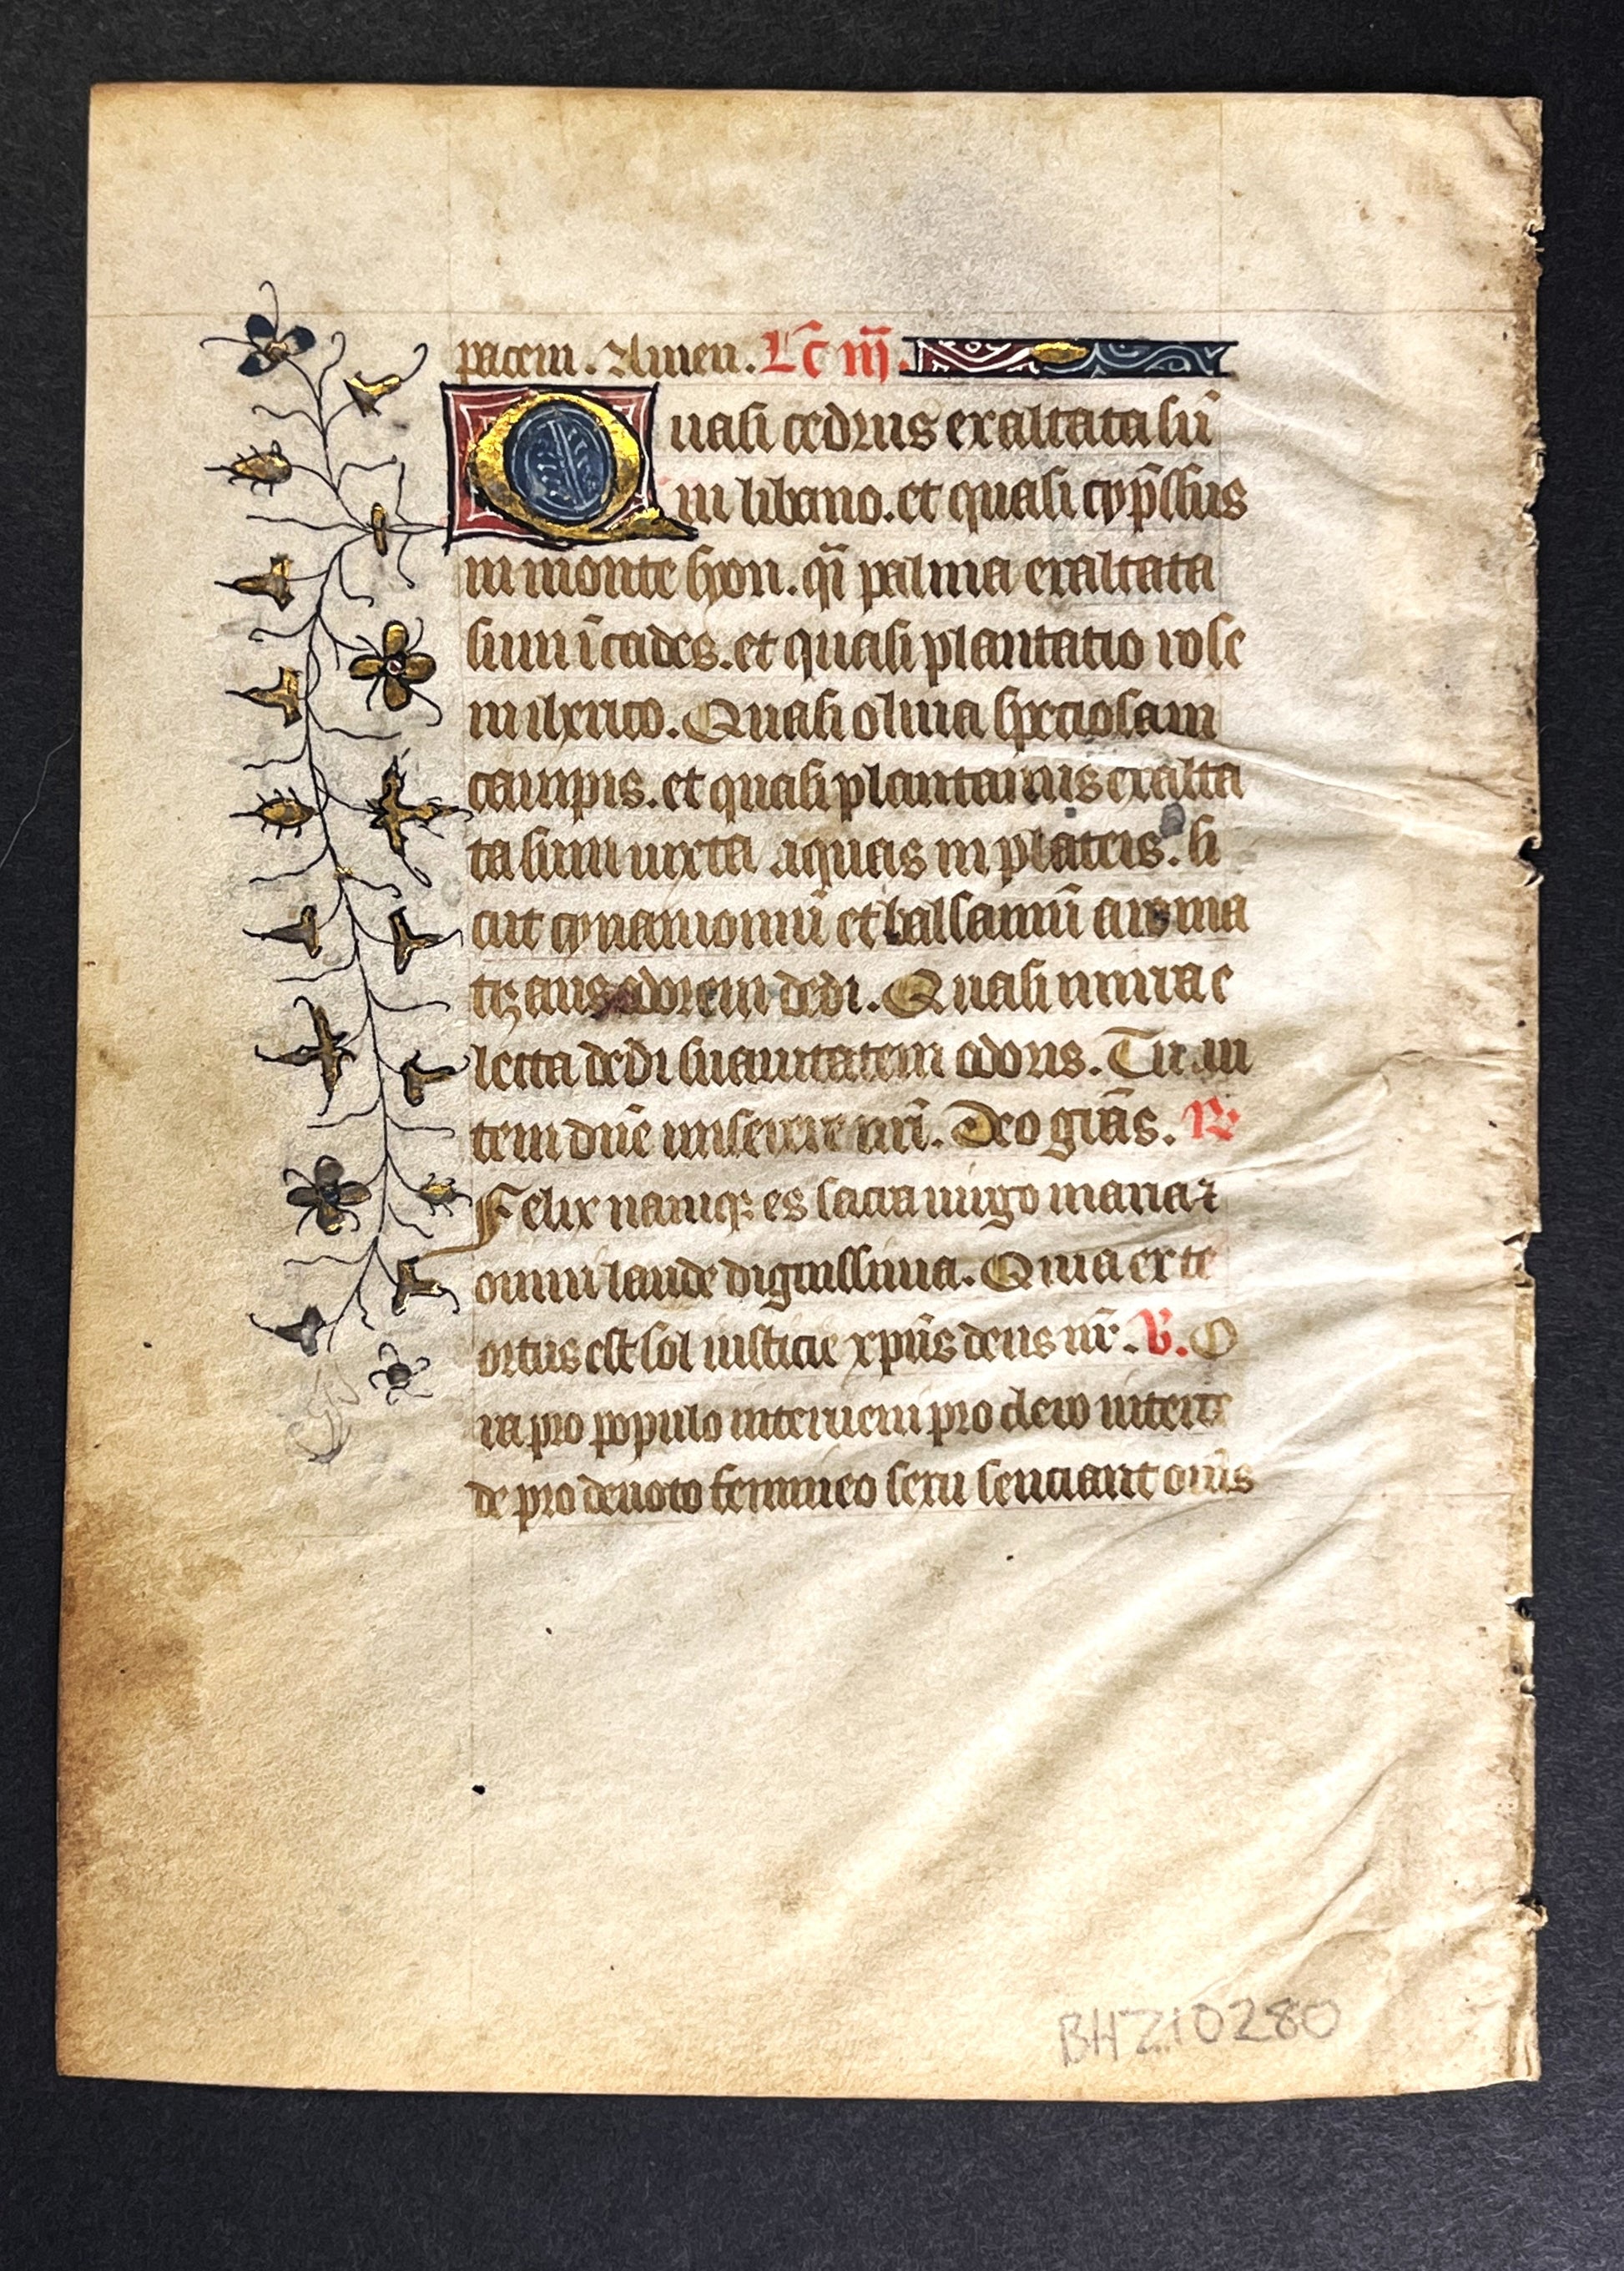 pacem. Amen. Lc̄ iij̄.
Quasi cedrus exaltata sū
in libano. et quasi cyp̄ssus
in monte syon. qī palma exaltata
sum ī cades. et quasi plantatio rose
in iherico. Quasi oliua speciosa in
campis. et quasi plantanus exalta
ta sum iuxta aquas in plateis. si
cut cynamomū et balsamū aroma
tiz̨ans odorem dedi. Quasi mirra e
lecta dedi suauitatem odoris. Tu au
tem dn̄e miserere nrī. Deo grās. ℟
Felix namqꝫ es sacra uirgo maria ⁊
omni laude dignissima. Quia ex te
ortus est sol iusticie xp̄us deus nr̄. ℣. O
ra pro populo interueni pro clero interce
de pro deuoto femineo sexu senciant om̄s
BHZ10280